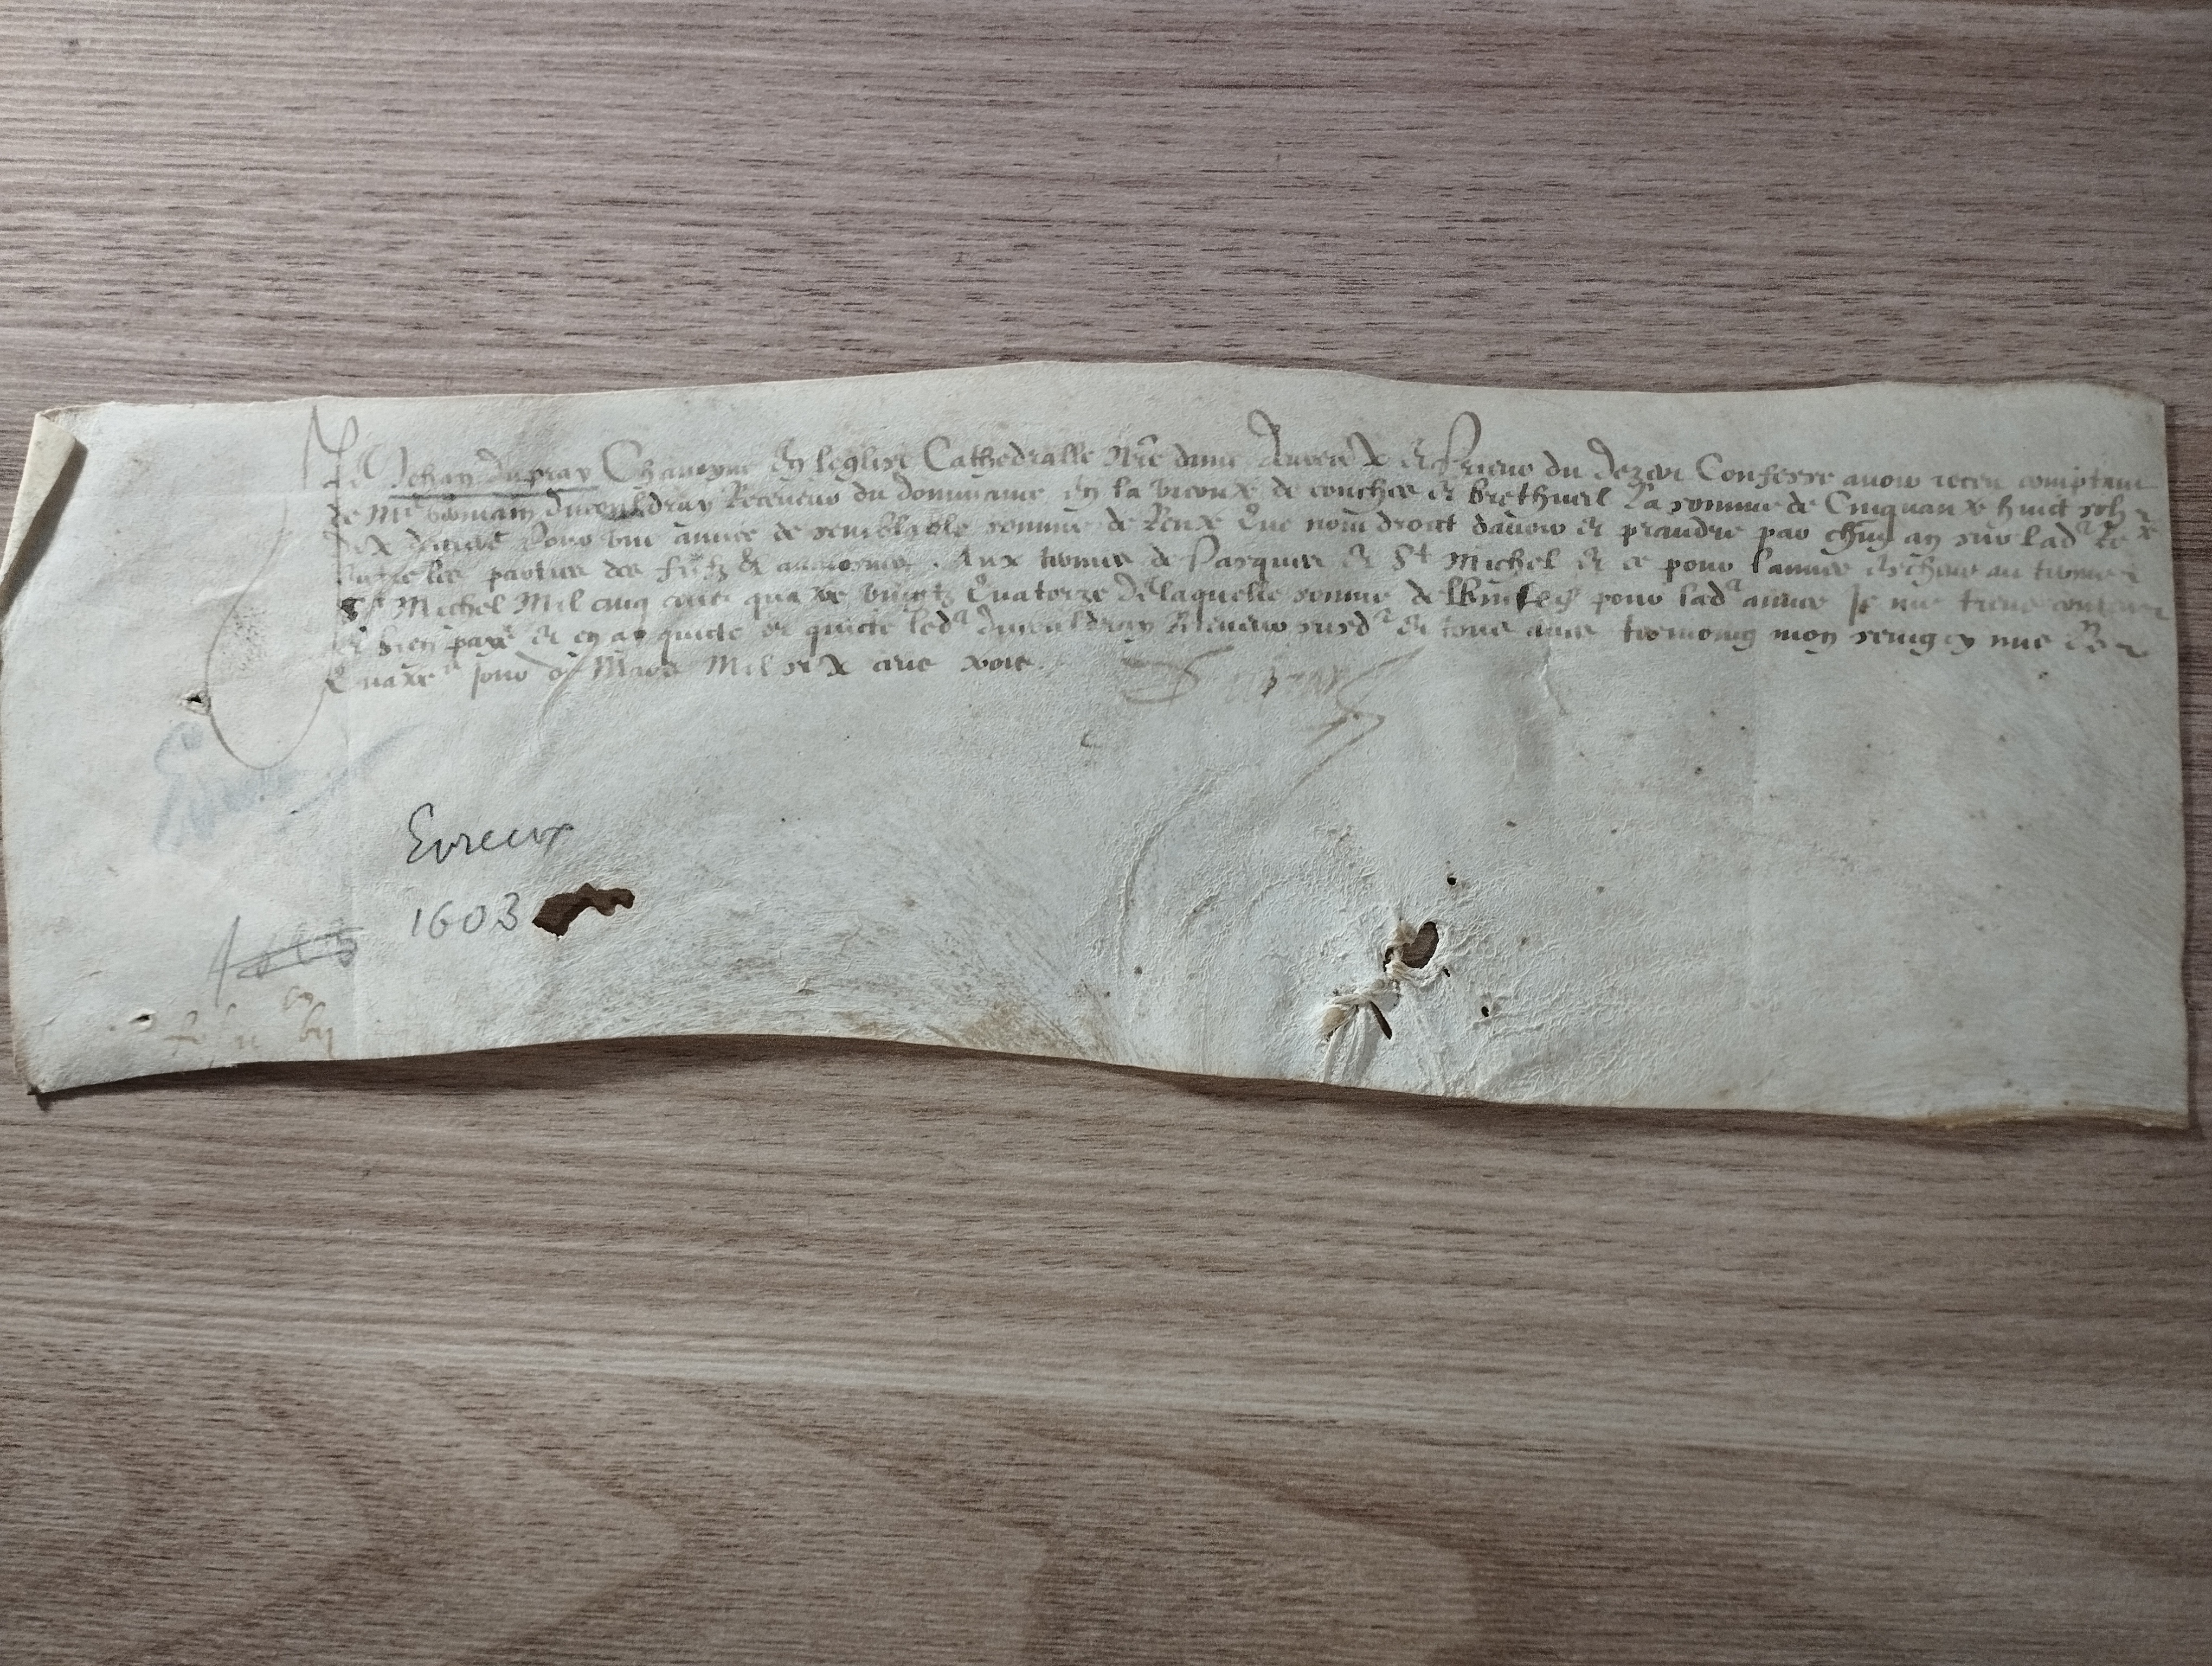 Je Jehan dupray Chanoyne en leglise Cathedralle nre dame deureux et Prieur du dezer Confesse auoir receu comptant
de Me Romain ducouldray Receueur du dommaine en la viconte de conches et brethueil La somme de Cinquante huict solz
dix deniers Pour vne année de semblable somme de Rente Que nom droict dauoir et prandre par chun an sur lad Rete
parties des fiefz et aumosnes Aux termes de Pasques et St Michel et ce pour lannee escheue au terme
St Michel Mil cinq cens quatre vingtz Quatorze de laquelle somme de pour lad annee Je me tiens content
et bien payé et en acquicte et quicte led ducouldray Receueur susd et tous aues tesmoing mon seing mis Ce
Quatree jour de Mars Mil six cens trois.
Dupray
Evreux
Evreux
1603